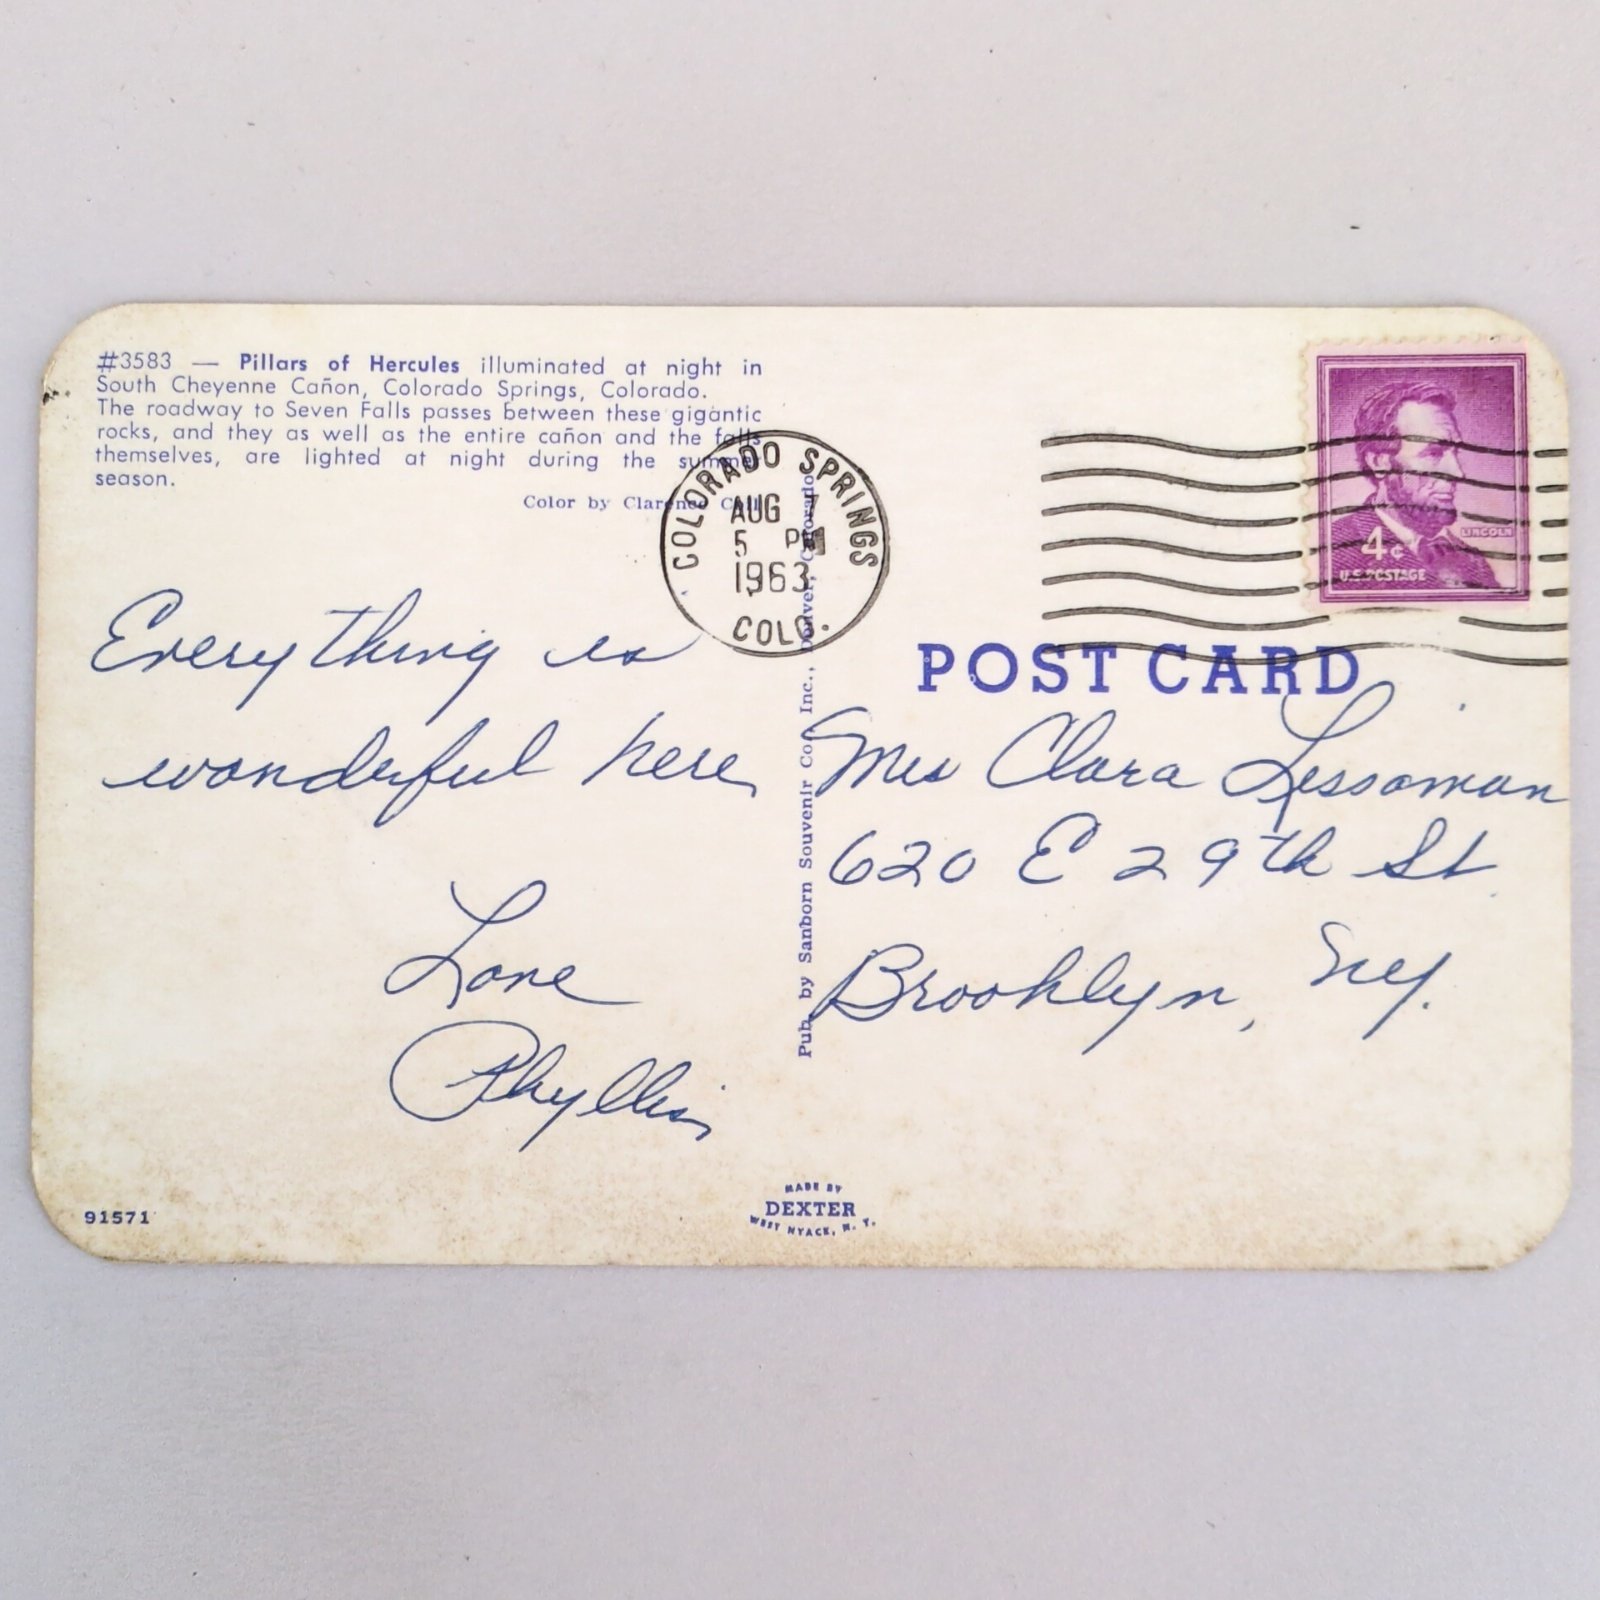 #3583 — Pillars of Hercules illuminated at night in
South Cheyenne Cañon, Colorado Springs, Colorado.
The roadway to Seven Falls passes between these gigantic
rocks, and they as well as the entire cañon and the falls
themselves, are lighted at night during the summer
season.
Color by Clarence Coil
COLORADO SPRINGS
AUG 7
5 PM
1963
COLO.
LINCOLN
4¢
U.S. POSTAGE
POST CARD
Everything is
wonderful here
Love
Phyllis
Pub. by Sanborn Souvenir Co. Inc., Denver, Colorado
Mrs Clara Lessoman
620 E 29th St
Brooklyn, NY.
91571
MADE BY
DEXTER
WEST NYACK, N. Y.